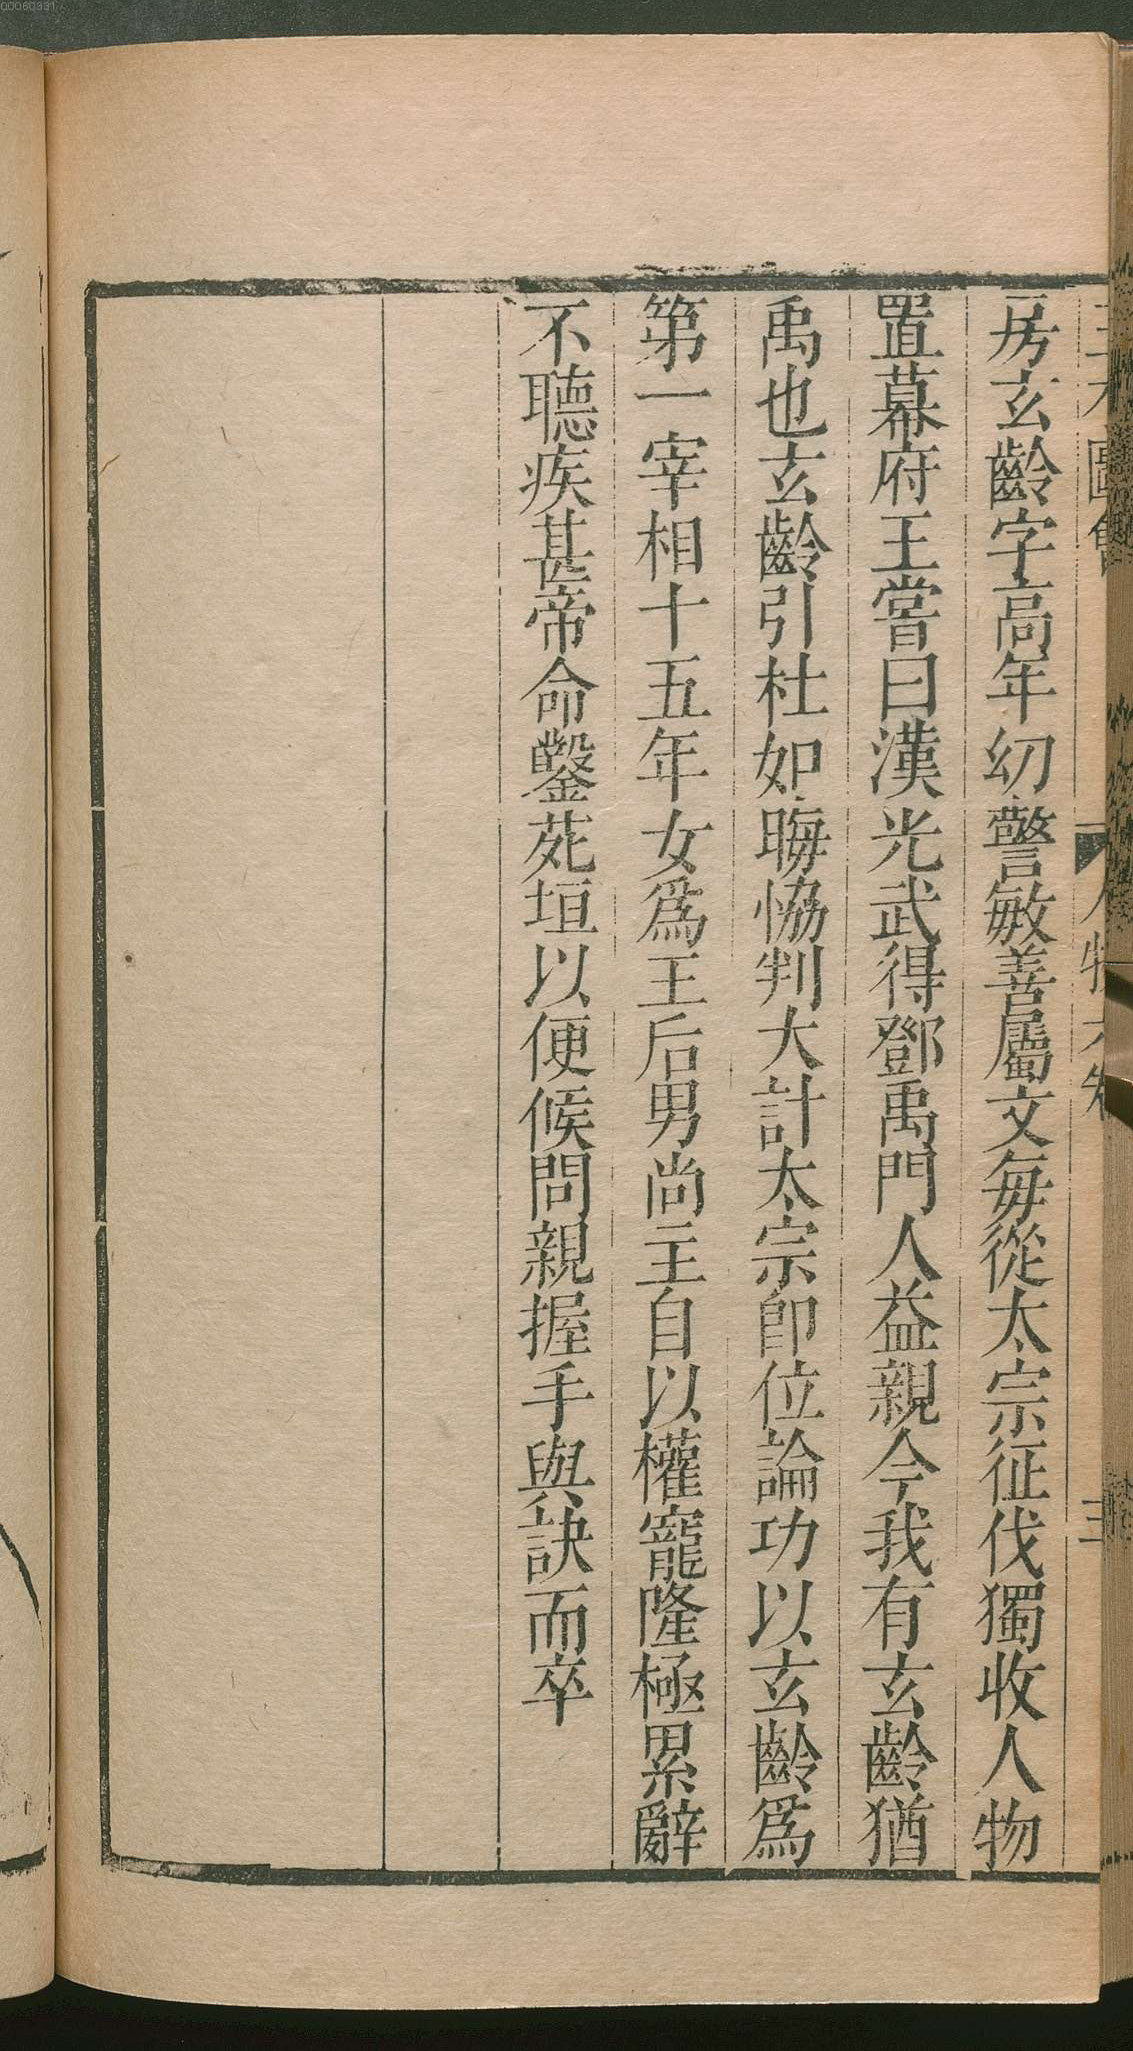 00060331
三才圖會 人物六卷 三
房玄齡字高年幼警敏善屬文每從太宗征伐獨收人物
置幕府王嘗曰漢光武得鄧禹門人益親今我有玄齡猶
禹也玄齡引杜如晦恊判大計太宗卽位論功以玄齡爲
第一宰相十五年女爲王后男尚主自以權寵隆極累辭
不聽疾甚帝命鑿苑垣以便候問親握手與訣而卒